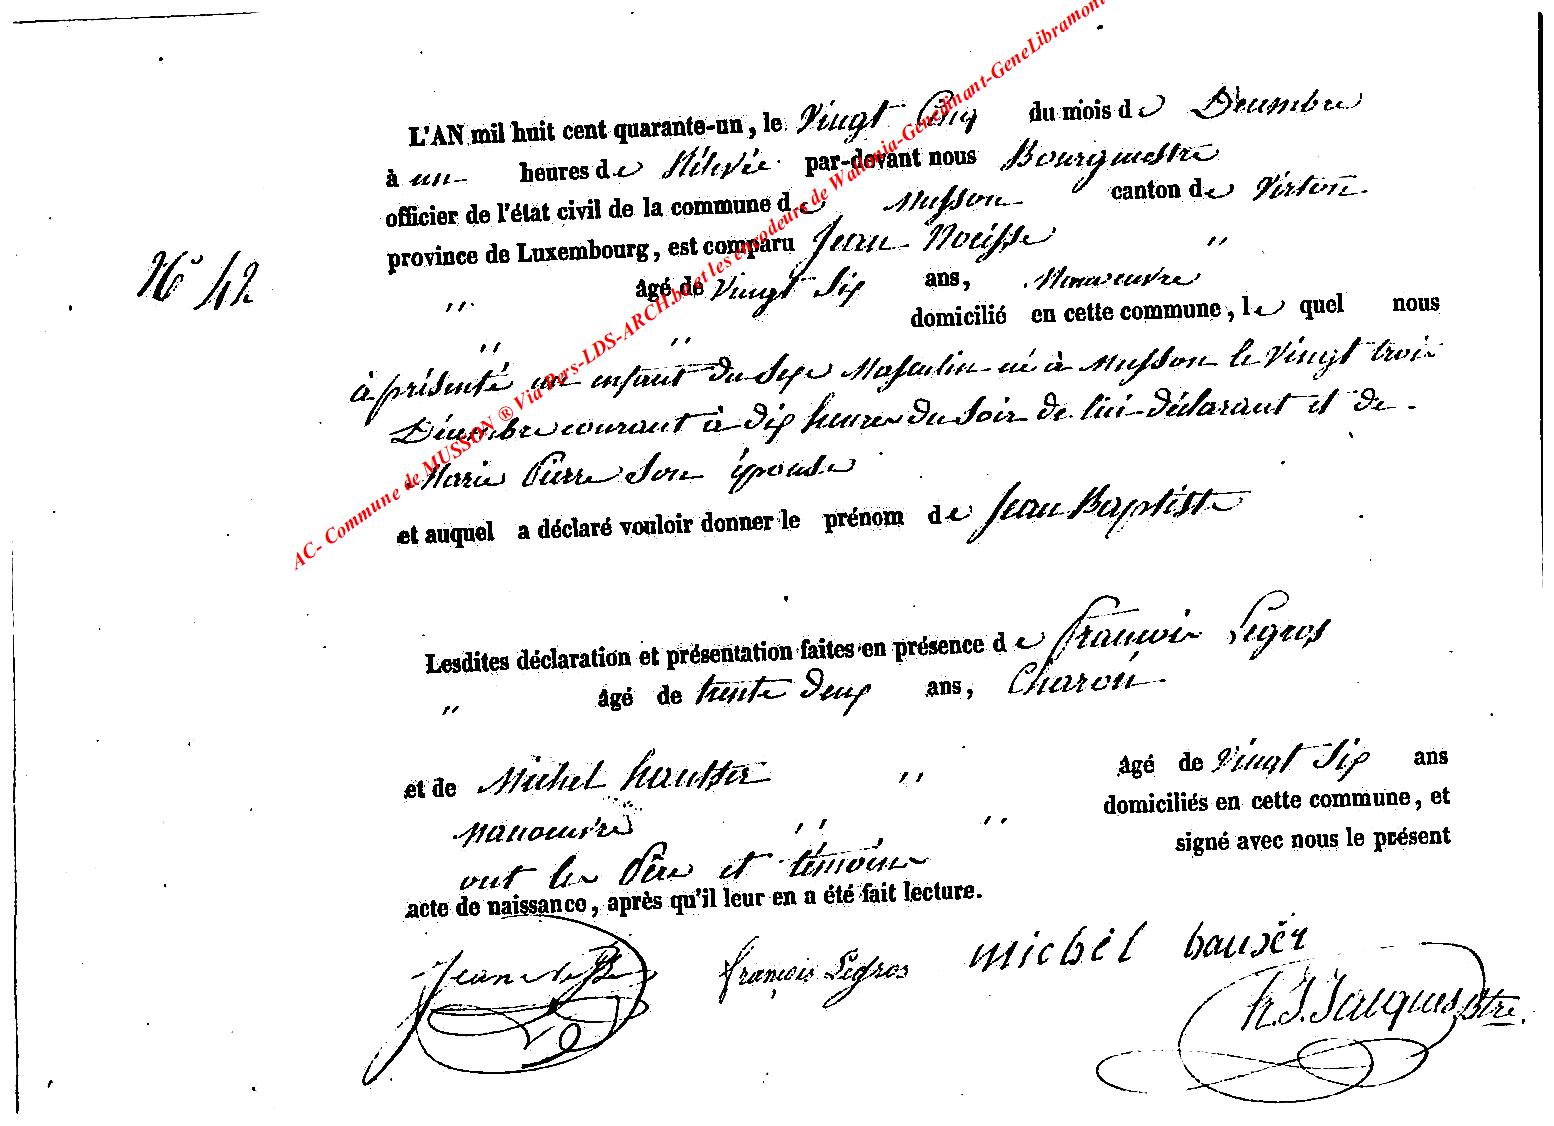 L'AN mil huit cent quarante-un, le Vingt Cinq du mois de Decembre
à un heures de Rélévée par-devant nous Bourgmestre
officier de l'état civil de la commune de Musson canton de Virton
province de Luxembourg, est comparu Jean "
N° 42
" âgé de Vingt Six ans, Manoeuvre
" " domicilié en cette commune, le quel nous
à présenté un enfant du Sexe Masculin né à Musson le Vingt trois
Décembre courant à dix heures du Soir de lui déclarant et de
Marie Pierre Son épouse
et auquel a déclaré vouloir donner le prénom de Jean Baptiste
Lesdites déclaration et présentation faites en présence de François Legros
" âgé de trente deux ans, Charon
et de Michel hausser " âgé de Vingt Six ans
manoeuvre " " domiciliés en cette commune, et
ont les Père et témoins signé avec nous le présent
acte de naissance, après qu'il leur en a été fait lecture.
Jean François Legros Michel hauser
Jacques Btre.
AC- Commune de MUSSON ® Via Pers-LDS-ARCH.be et les encodeurs de Wallonia-Genedinant-GeneLibramont